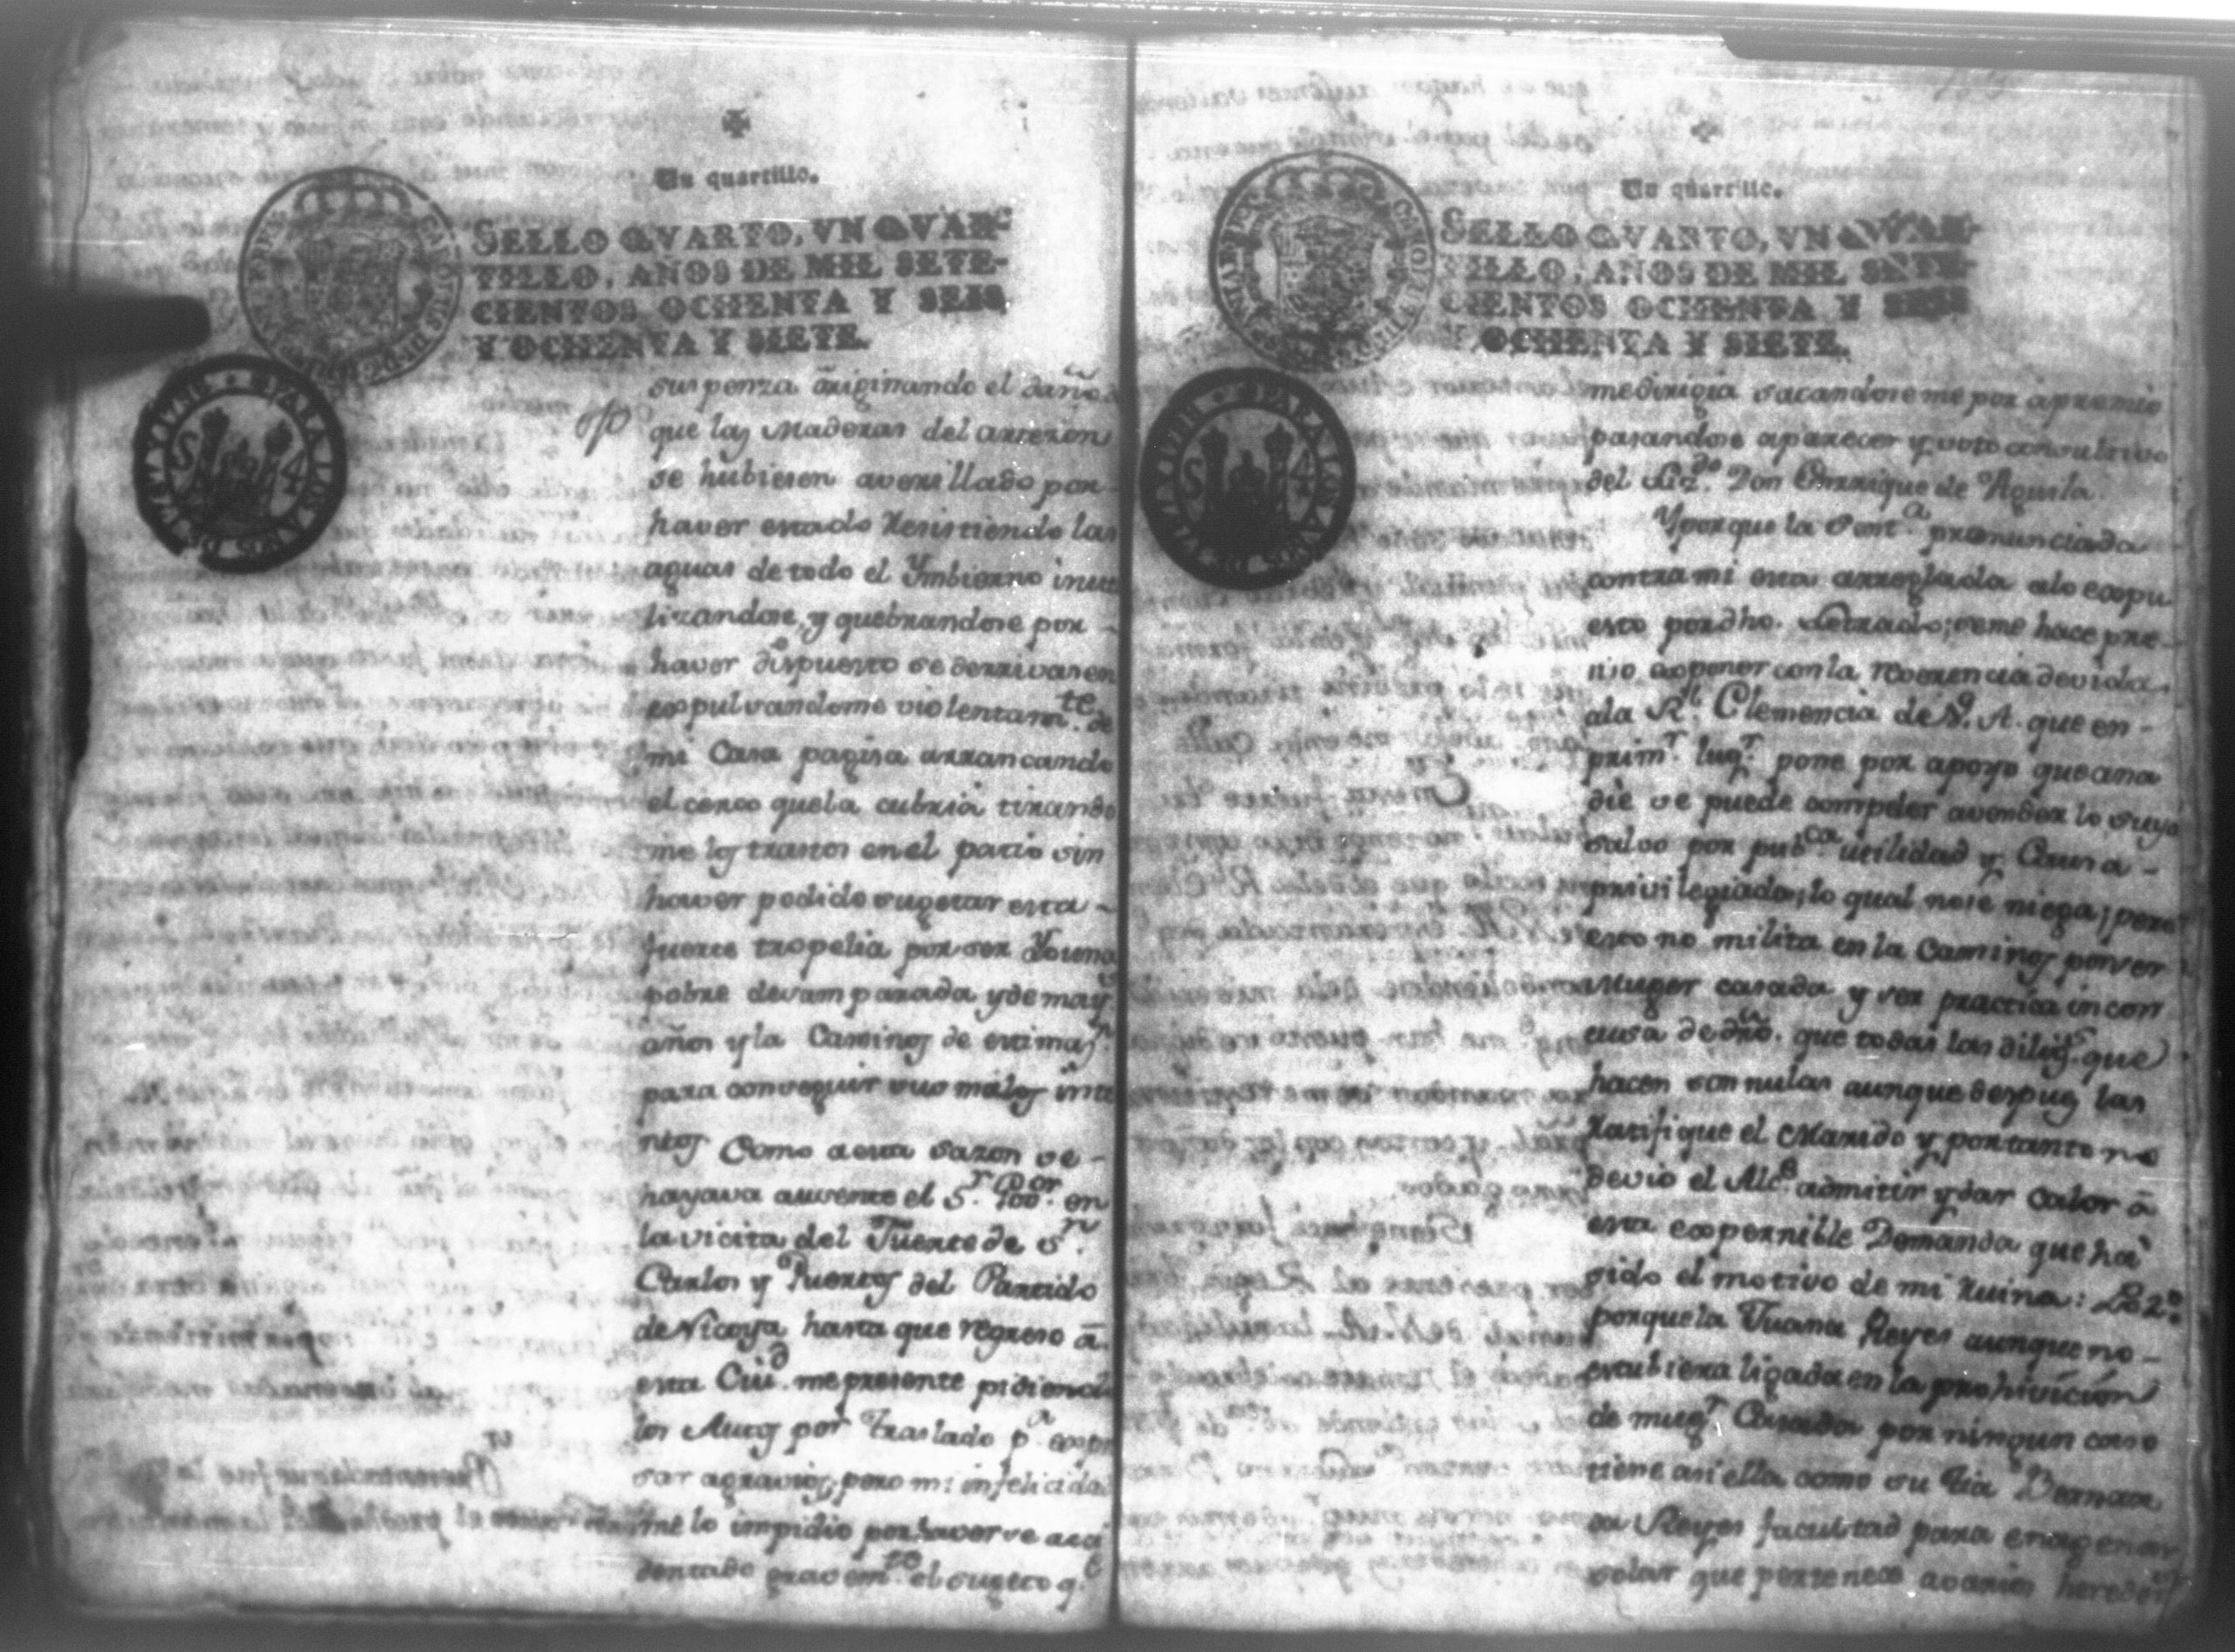 Un quartillo.
SELLO QVARTO, VN QVAR-
TILLO, AÑOS DE MIL SETE-
CIENTOS OCHENTA Y SEIS
Y OCHENTA Y SIETE.
suspenza äriginando el daño
que las Maderas del arteron
se hubiesen averillado por
haver estado Resistiendo las
aguas de todo el Ymbierno inut
lizandose, y quebrandose por
haver dispuesto se derrivasen
expulsandome violentamte. de
mi Casa pagisa arrancando
el cerco que la cubria tirando
me los trastos en el patio sin
haver podido sugetar esta -
fuerte tropelia por ser Yo una
pobre desamparada y de mays
años y la Caminos de estimasn.
para conseguir sus malos inte
ntos Como a esta sazon se -
hayava ausente el Sr. Govor. en
la vicita del Fuerte de Sn.
Carlos y Puertos del Partido
de Nicoya hasta que regreso ā
esta Ciud. me presente pidiendo
los Autos por traslado pa. expre
sar agravios, pero mi infelicidad
me lo impidio por haverse acci
dentado gravemte. el sugeto qe.
Un quartillo.
SELLO QVARTO, VN QVAR-
TILLO, AÑOS DE MIL SETE-
CIENTOS OCHENTA Y SEIS
Y OCHENTA Y SIETE.
me dirigia sacandoseme por apremio
pasandose a parecer y voto consultivo
del Lizdo. Don Enrrique de Aguila.
Y porque la Senta. pronunciada
contra mi esta arreglada a lo expu
esto por dho. Letrado; se me hace pre-
niso exponer con la reverencia devida
a la Rl. Clemencia de V. A. que en -
primr. lugr. pone por apoyo que a na
die se puede compeler a vender lo suyo
salvo por pubca. utilidad y Causa -
privilegiada; lo qual no se niega; pero
esto no milita en la Caminos por ser
Muger casada y ser practica incon
cusa de dro. que todas las diligs. que
hacen son nulas aunque despues las
Ratifique el Marido y por tanto no
devio el Alce. admitir y dar calor ā
esta expernible Demanda que ha
sido el motivo de mi Ruina: Lo 2o.
porque la Juana Reyes aunque no -
estubiera ligada en la prohivición
de mugr. Casada por ningun caso
tiene asi ella como su tia Bernar
da Reyes facultad para enagenar
solar que pertenece a varios hereders